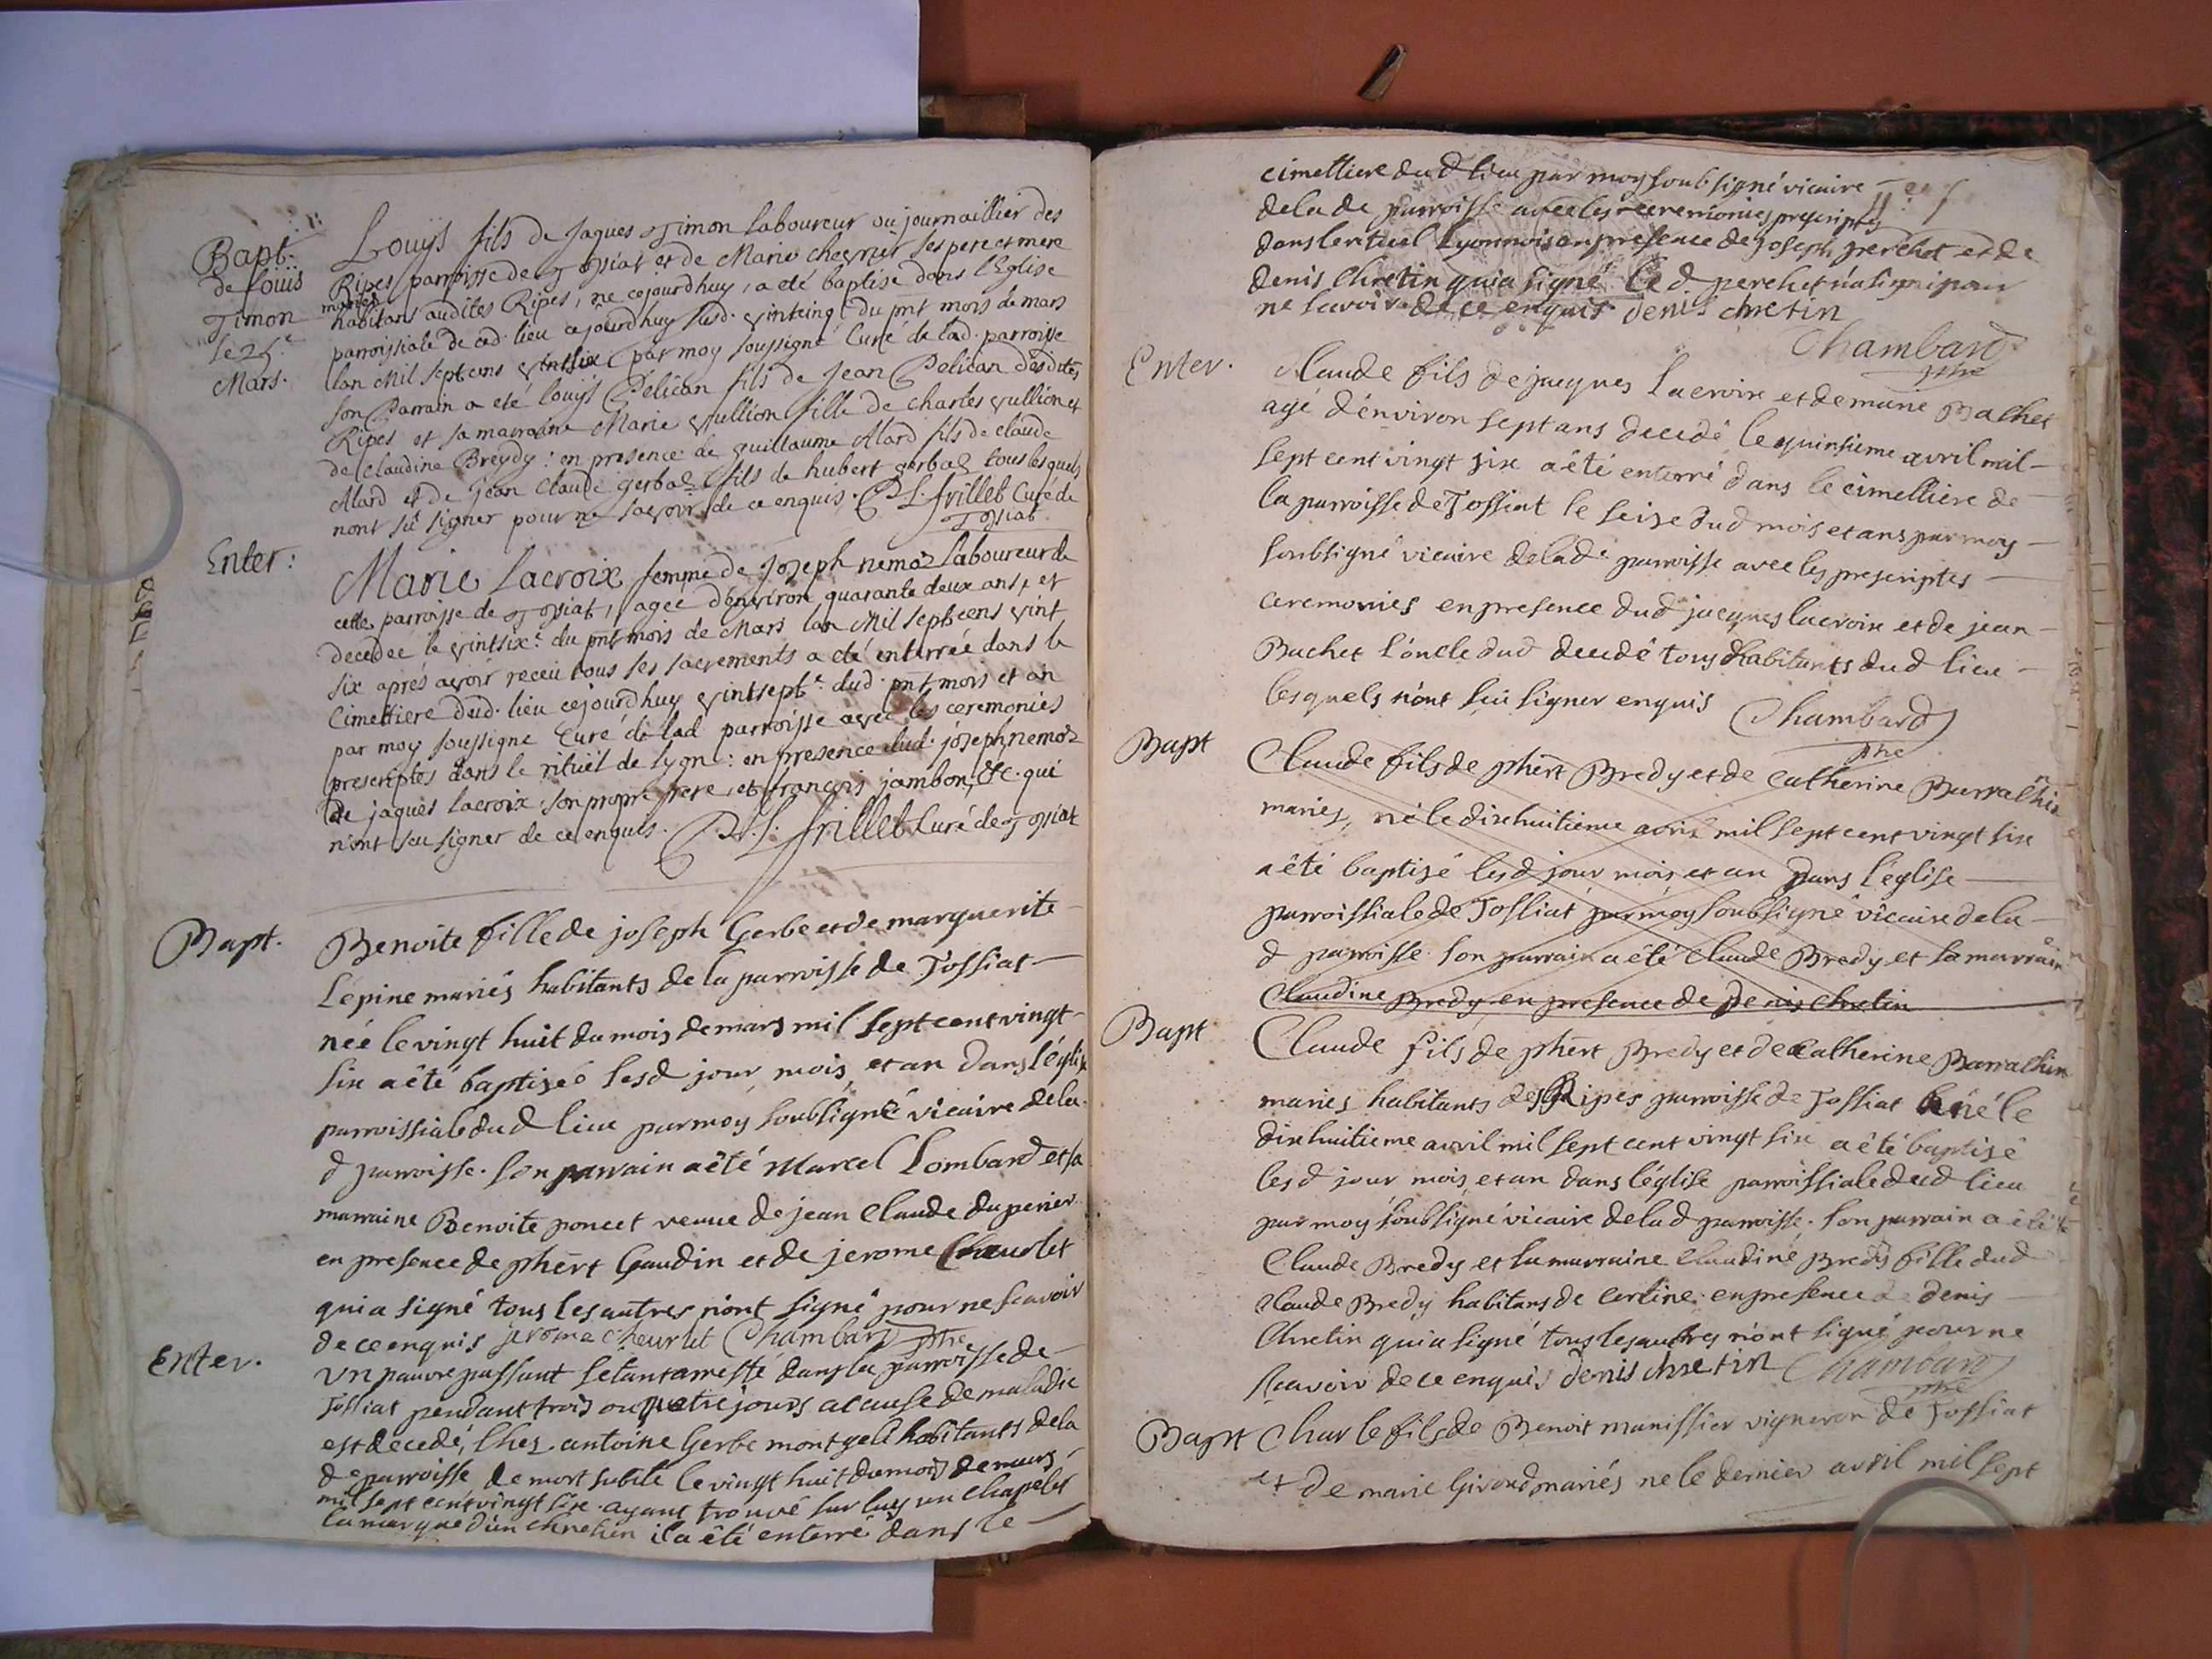 Bapt.
de louïs
Timon
le 25.e
Mars.
Louÿs fils de Jaques Timon laboureur ou journaillier des
Ripes parroisse de Tossiat et de Marie chevrier ses pere et mere
mariés
habitans audites Ripes, né cejourdhuy, a eté baptisé dans l'Eglise
parroissiale de ced. lieu cejourdhuy susd. vintcinq du pnt mois de mars
lan Mil sept cens vintsix par moy soussigné Curé de lad. parroisse
son Parrain a eté louÿs Pelican fils de Jean Pelican desdites
Ripes et sa marraine Marie Vullion fille de charles vullion et
de Claudine Breydy: en presence de guillaume Alard fils de claude
Alard et de Jean Claude gerbaz fils de hubert gerbaz tous lesquels
nont sû signer pour ne sçavoir de ce enquis. frillet Curé de
Tossiat
Enter:
Marie Lacroix femme de Joseph nemoz laboureur de
cette parroisse de Tossiat, agée d'environ quarante deux ans, et
decedée le vintsix.e du pnt mois de Mars lan Mil sept cens vint
six aprés avoir receu tous ses sacrements a eté enterrée dans le
Cimettiere dud. lieu cejourdhuy vintsept.e dud. pnt mois et an
par moy soussigné Curé de lad parroisse avec les ceremonies
prescriptes dans le rituel de lyon: en presence dud. joseph nemoz
de jaques lacroix son propre frere, et francois jambon, &c. qui
n'ont seu signer de ce enquis. frillet Curé de Tossiat
Bapt.
Benoite fille de joseph Gerbe et de marguerite
Lépine mariés habitants de la parroisse de Tossiat
née le vingt huit du mois de mars mil sept cent vingt
six a êté baptizée lesd jour, mois, et an dans l'églize
parroissiale dud lieu par moy soubsigné vicaire de la
d parroisse. son parrain a êté Marcel Lombard et sa
marraine Benoite poncet veuve de jean Claude du perier
en presence de phêrt Gaudin et de jerome Cheurlet
qui a signé tous les autres n'ont signé pour ne scavoir
de ce enquis jerome cheurlet Chambard ptre
Enter.
Un pauvre passant s'etant arresté dans la parroisse de
Tossiat pendant trois ou quatre jours a cause de maladie
est decedé, Chez antoine Gerbe montgelé habitants de la
de parroisse de mort subite le vingt huit du mois de mars
mil sept cent vingt six. ayant trouvé sur luy un chapelet
la marque d'un chretien il a êté enterré dans le
cimettiere dud lieu par moy soubsigné vicaire
de la de parroisse avec les ceremonies prescriptes
dans le rituel Lyonnois en presence de joseph perchet et de
denis Chretin qui a signé Le d perchet n'a signé pour
ne scavoir de ce enquis denis chretin
Chambard
ptre
Enter.
Claude fils de jacques Lacroix et de Bachet
agé d'environ sept ans decedé le quinsieme avril mil
sept cent vingt six a êté enterré dans le cimettiere de
la parroisse de Tossiat le seize dud mois et ans par moy
soubsigné vicaire de lade parroisse avec les prescriptes
ceremonies en presence dud jacques lacroix et de jean
Bachet l'óncle dud decedé tous habitants dud lieu
lesquels n'ont seü signer enquis Chambard
ptre
Bapt
Claude fils de phêrt Bredy et de Catherine Barrachin
mariés, né le dixhuitieme avril mil sept cent vingt six
a êté baptizé lesd jour mois et an dans l'église
parroissiale de Tossiat par moy soubsigné vicaire de la
d parroisse son parrain a êté Claude Bredy et sa marraine
Claudine Bredy en presence de Denis Chretin
Bapt
Claude fils de phêrt Bredy et de Catherine Barrachin
mariés habitants des Ripes parroisse de Tossiat né le
dixhuitieme avril mil sept cent vingt six a êté baptizé
lesd jour mois et an dans l'église parroissiale dud lieu
par moy soubsigné vicaire de lad parroisse. son parrain a êté
Claude Bredy et la marraine Claudine Bredy fille dud
Claude Bredy habitans de Certine. en presence de denis
Chretin qui a signé tous les autres n'ont signé pour ne
scavoir de ce enquis denis chretin Chambard
ptre
Bapt
Charle fils de Benoit manissier vigneron de Tossiat
et de marie Giroud mariés né le dernier avril mil sept